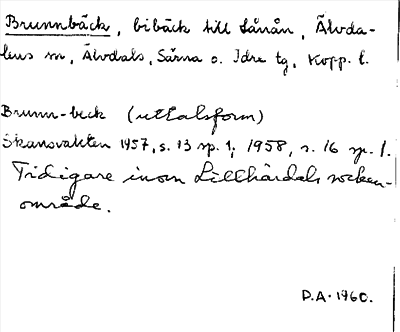 Brunnbäck, bibäck till Lånån, Älvda-
lens sn, Älvdals, Särna o. Idre tg, Kopp. l.
Brunn-beck (uttalsform)
Skansvakten 1957, s. 13 sp. 1, 1958, s. 16 sp. 1.
Tidigare inom Lillhärdals socken-
område.
D.A. 1960.